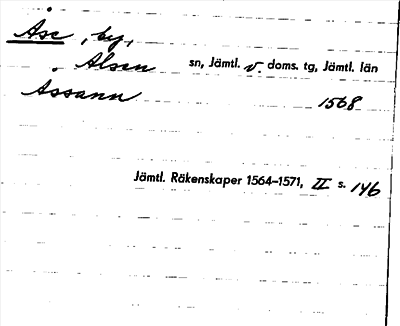 Åse, by,
Alsen sn, Jämtl. v. doms. tg, Jämtl. län
Assann 1568
Jämtl. Räkenskaper 1564–1571, II s. 146